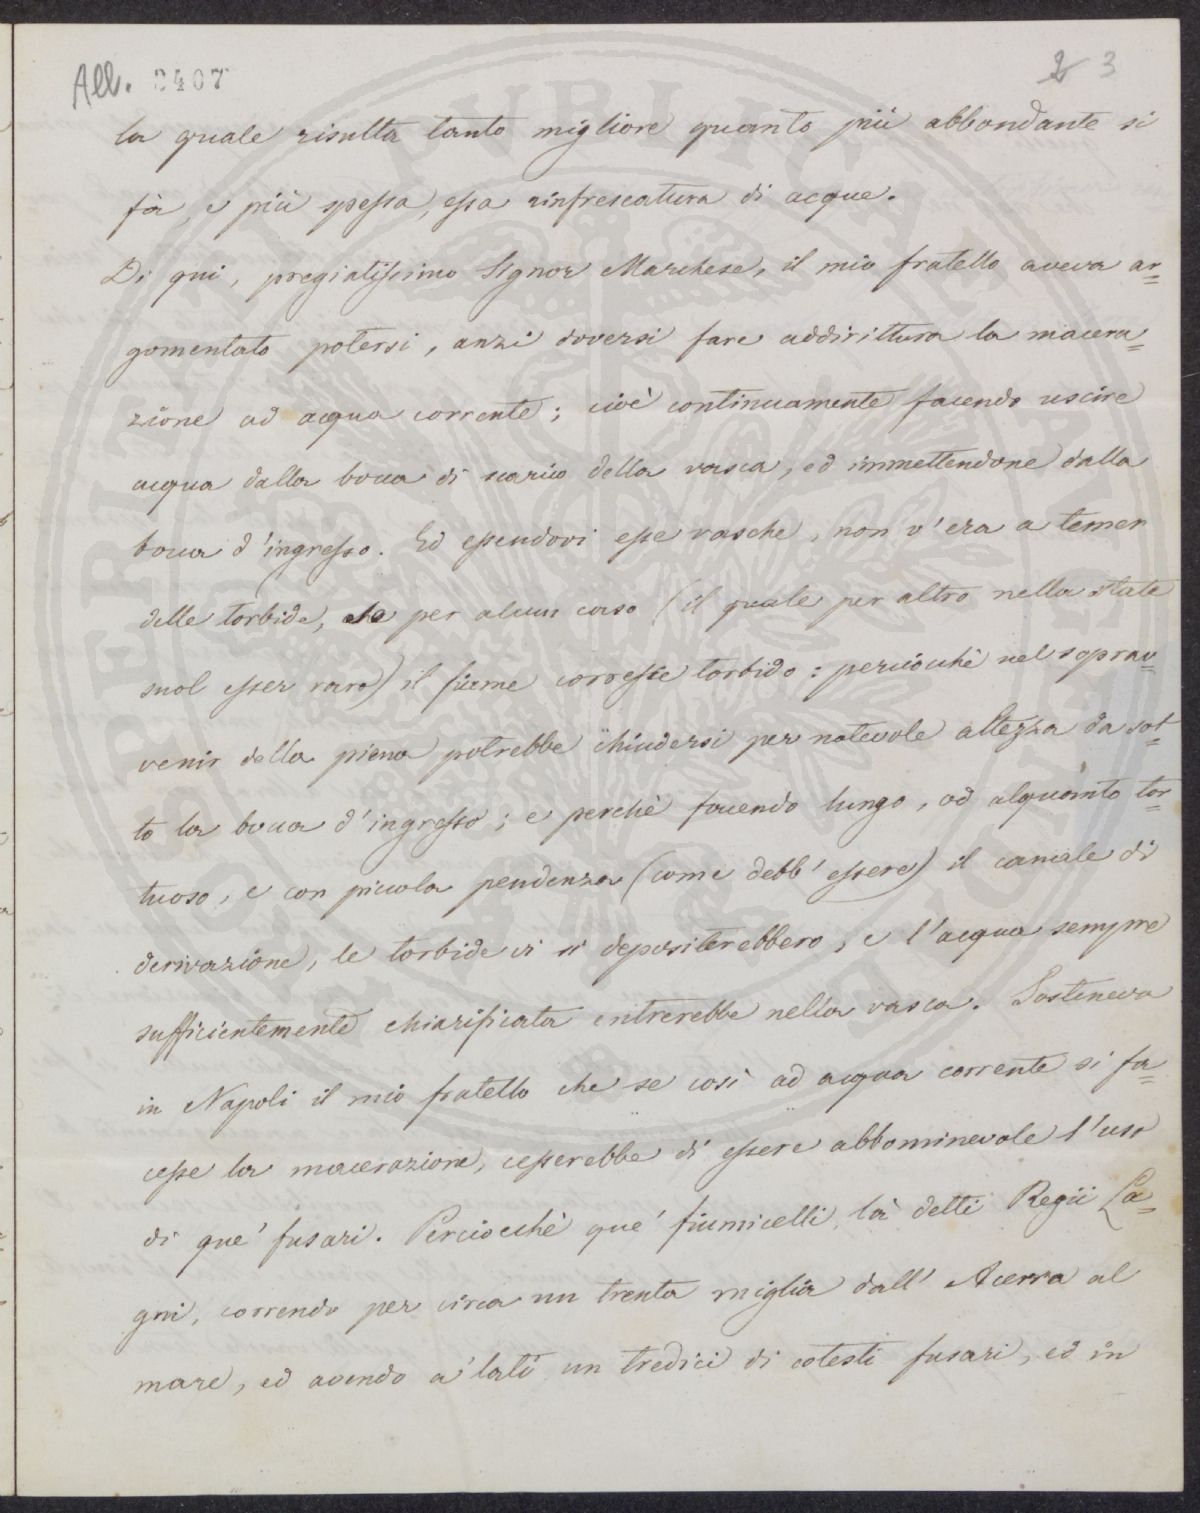 All. 2407
2 3
la quale risulta tanto migliore quanto più abbondante si
fà, e più spessa, essa rinfrescatura di acque.
Di qui, pregiatissimo Signor Marchese, il mio fratello aveva ar=
gomentato potersi, anzi doversi fare addirittura la macera=
zione ad acqua corrente; cioè continuamente facendo uscire
acqua dalla bocca di scarico della vasca, ed immettendone dalla
bocca d'ingresso. Ed essendovi esse vasche, non v'era a temer
delle torbide, se per alcun caso (il quale per altro nella state
suol esser raro) il fiume corresse torbido: perciocchè nel soprav=
venir della piena potrebbe chiudersi per notevole altezza da sot=
to la bocca d'ingresso; e perchè facendo lungo, ed alquanto tor=
tuoso, e con piccola pendenza (come debb'essere) il canale di
derivazione, le torbide vi si depositerebbero, e l'acqua sempre
sufficientemente chiarificata entrerebbe nella vasca. Sosteneva
in Napoli il mio fratello che se così ad acqua corrente si fa=
cesse la macerazione, cesserebbe di essere abbominevole l'uso
di que' fusari. Perciocchè que' fiumicelli, là detti Regii La=
gni, correndo per circa un trenta miglia dall'Acerra al
mare, ed avendo a' lati un tredici di cotesti fusari, ed in
PERITI PVBLICAE